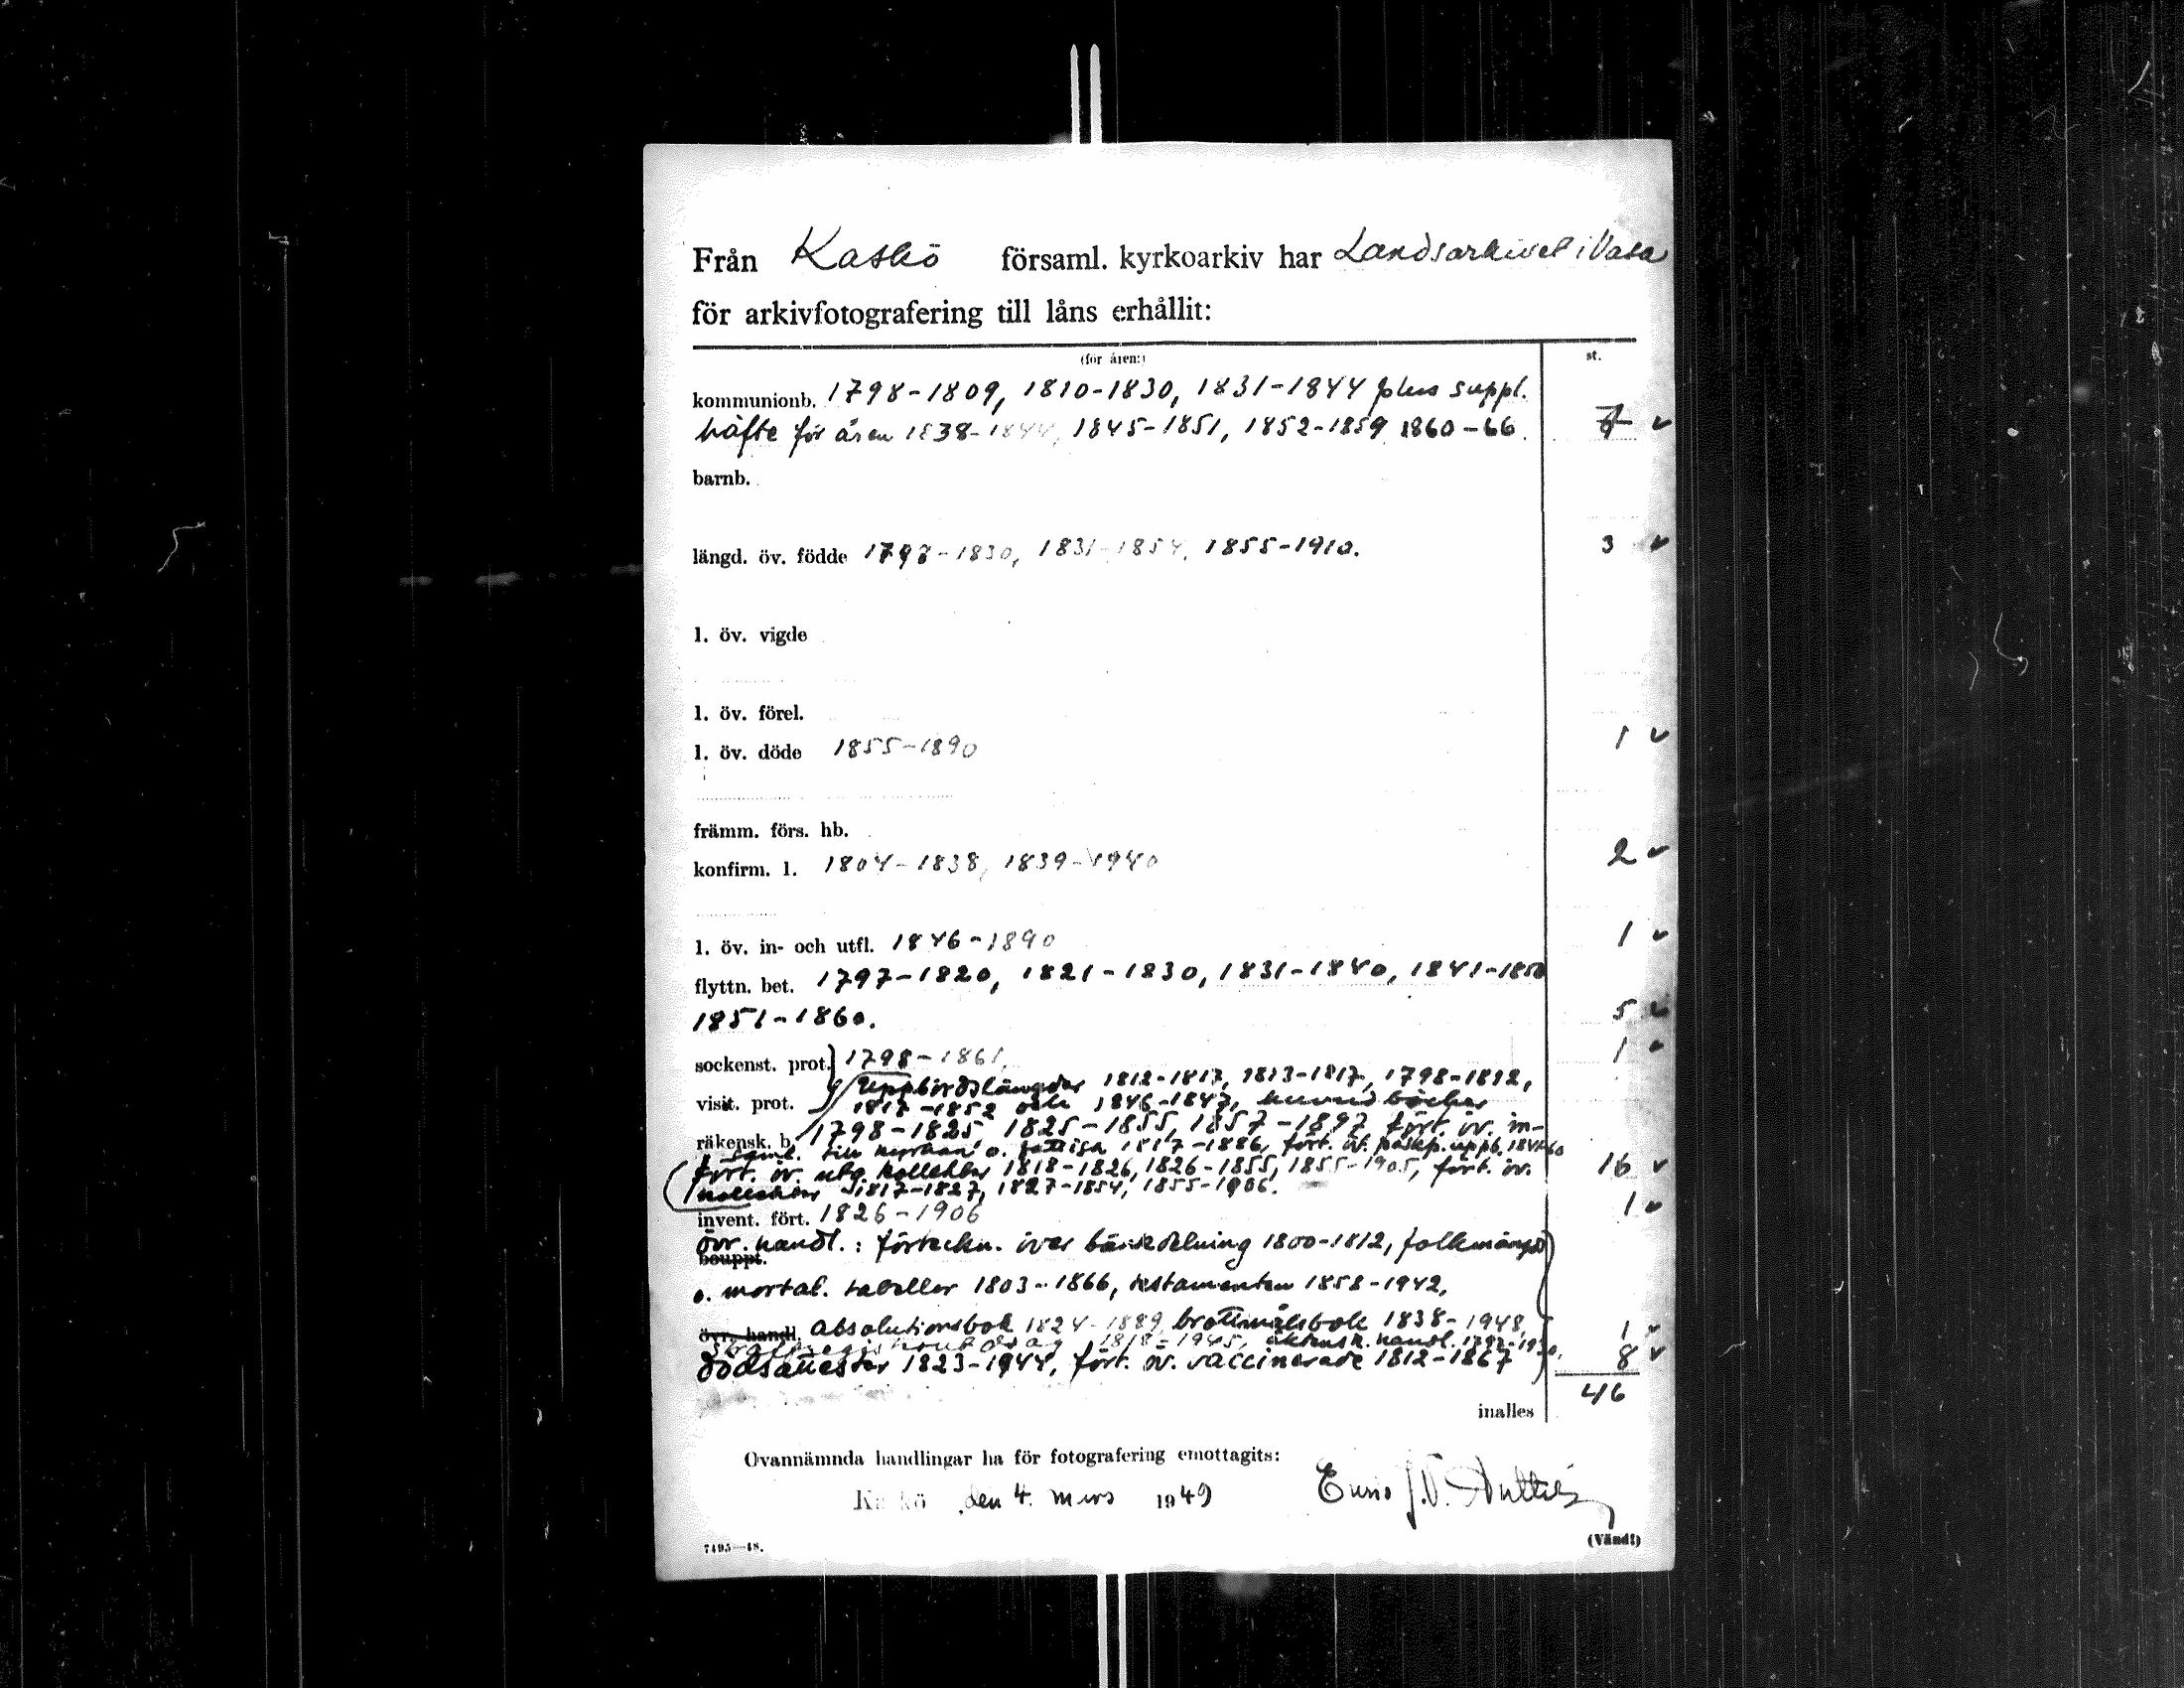 Från Kaskö församl. kyrkoarkiv har Landsarkivet i Vasa
för arkivfotografering till låns erhållit:
(för åren:) st.
kommunionb. 1798-1809, 1810-1830, 1831-1844 plus suppl.
häfte för åren 1838-1844, 1845-1851, 1852-1859 1860-66.
barnb.
längd. öv. födde 1798-1830, 1831-1854, 1855-1910. 3
l. öv. vigde
l. öv. förel.
l. öv. döde 1855-1890 1
främm. förs. hb.
konfirm. l. 1804-1838, 1839-1940 2
l. öv. in- och utfl. 1846-1890 1
flyttn. bet. 1797-1820, 1821-1830, 1831-1840, 1841-1850
1851-1860. 5
sockenst. prot. 1798-1861 1
Uppbördslängder 1812-1813, 1813-1817, 1798-1812,
visit. prot. 1817-1852 och 1846-1847,
räkensk. b. 1798-1825, 1825-1855, 1857-1897 fört. öv. in-
saml. till kyrkan o. fattiga 1817-1886, fört. öv.
fört. öv. utg. kollekter 1818-1826, 1826-1855, 1855-1905, fört. öv. 16
kollekter 1817-1827, 1827-1854, 1855-1906.
invent. fört. 1826-1906 1
övr. handl.: förteckn. över bänkdelning 1800-1812, folkmängd
bouppt.
o. mortal. tabeller 1803-1866, testamenten 1858-1942,
övr. handl. absolutionsbok 1824-1889, brottmålsbok 1838-1948, 1
straffregisterutdrag 1818-1945, äktensk. handl.
dödsattester 1823-1944, fört. öv. vaccinerade 1812-1867 8
46
inalles
Ovannämnda handlingar ha för fotografering emottagits:
Kaskö den 4. mars 1949
7495—48. (Vänd!)